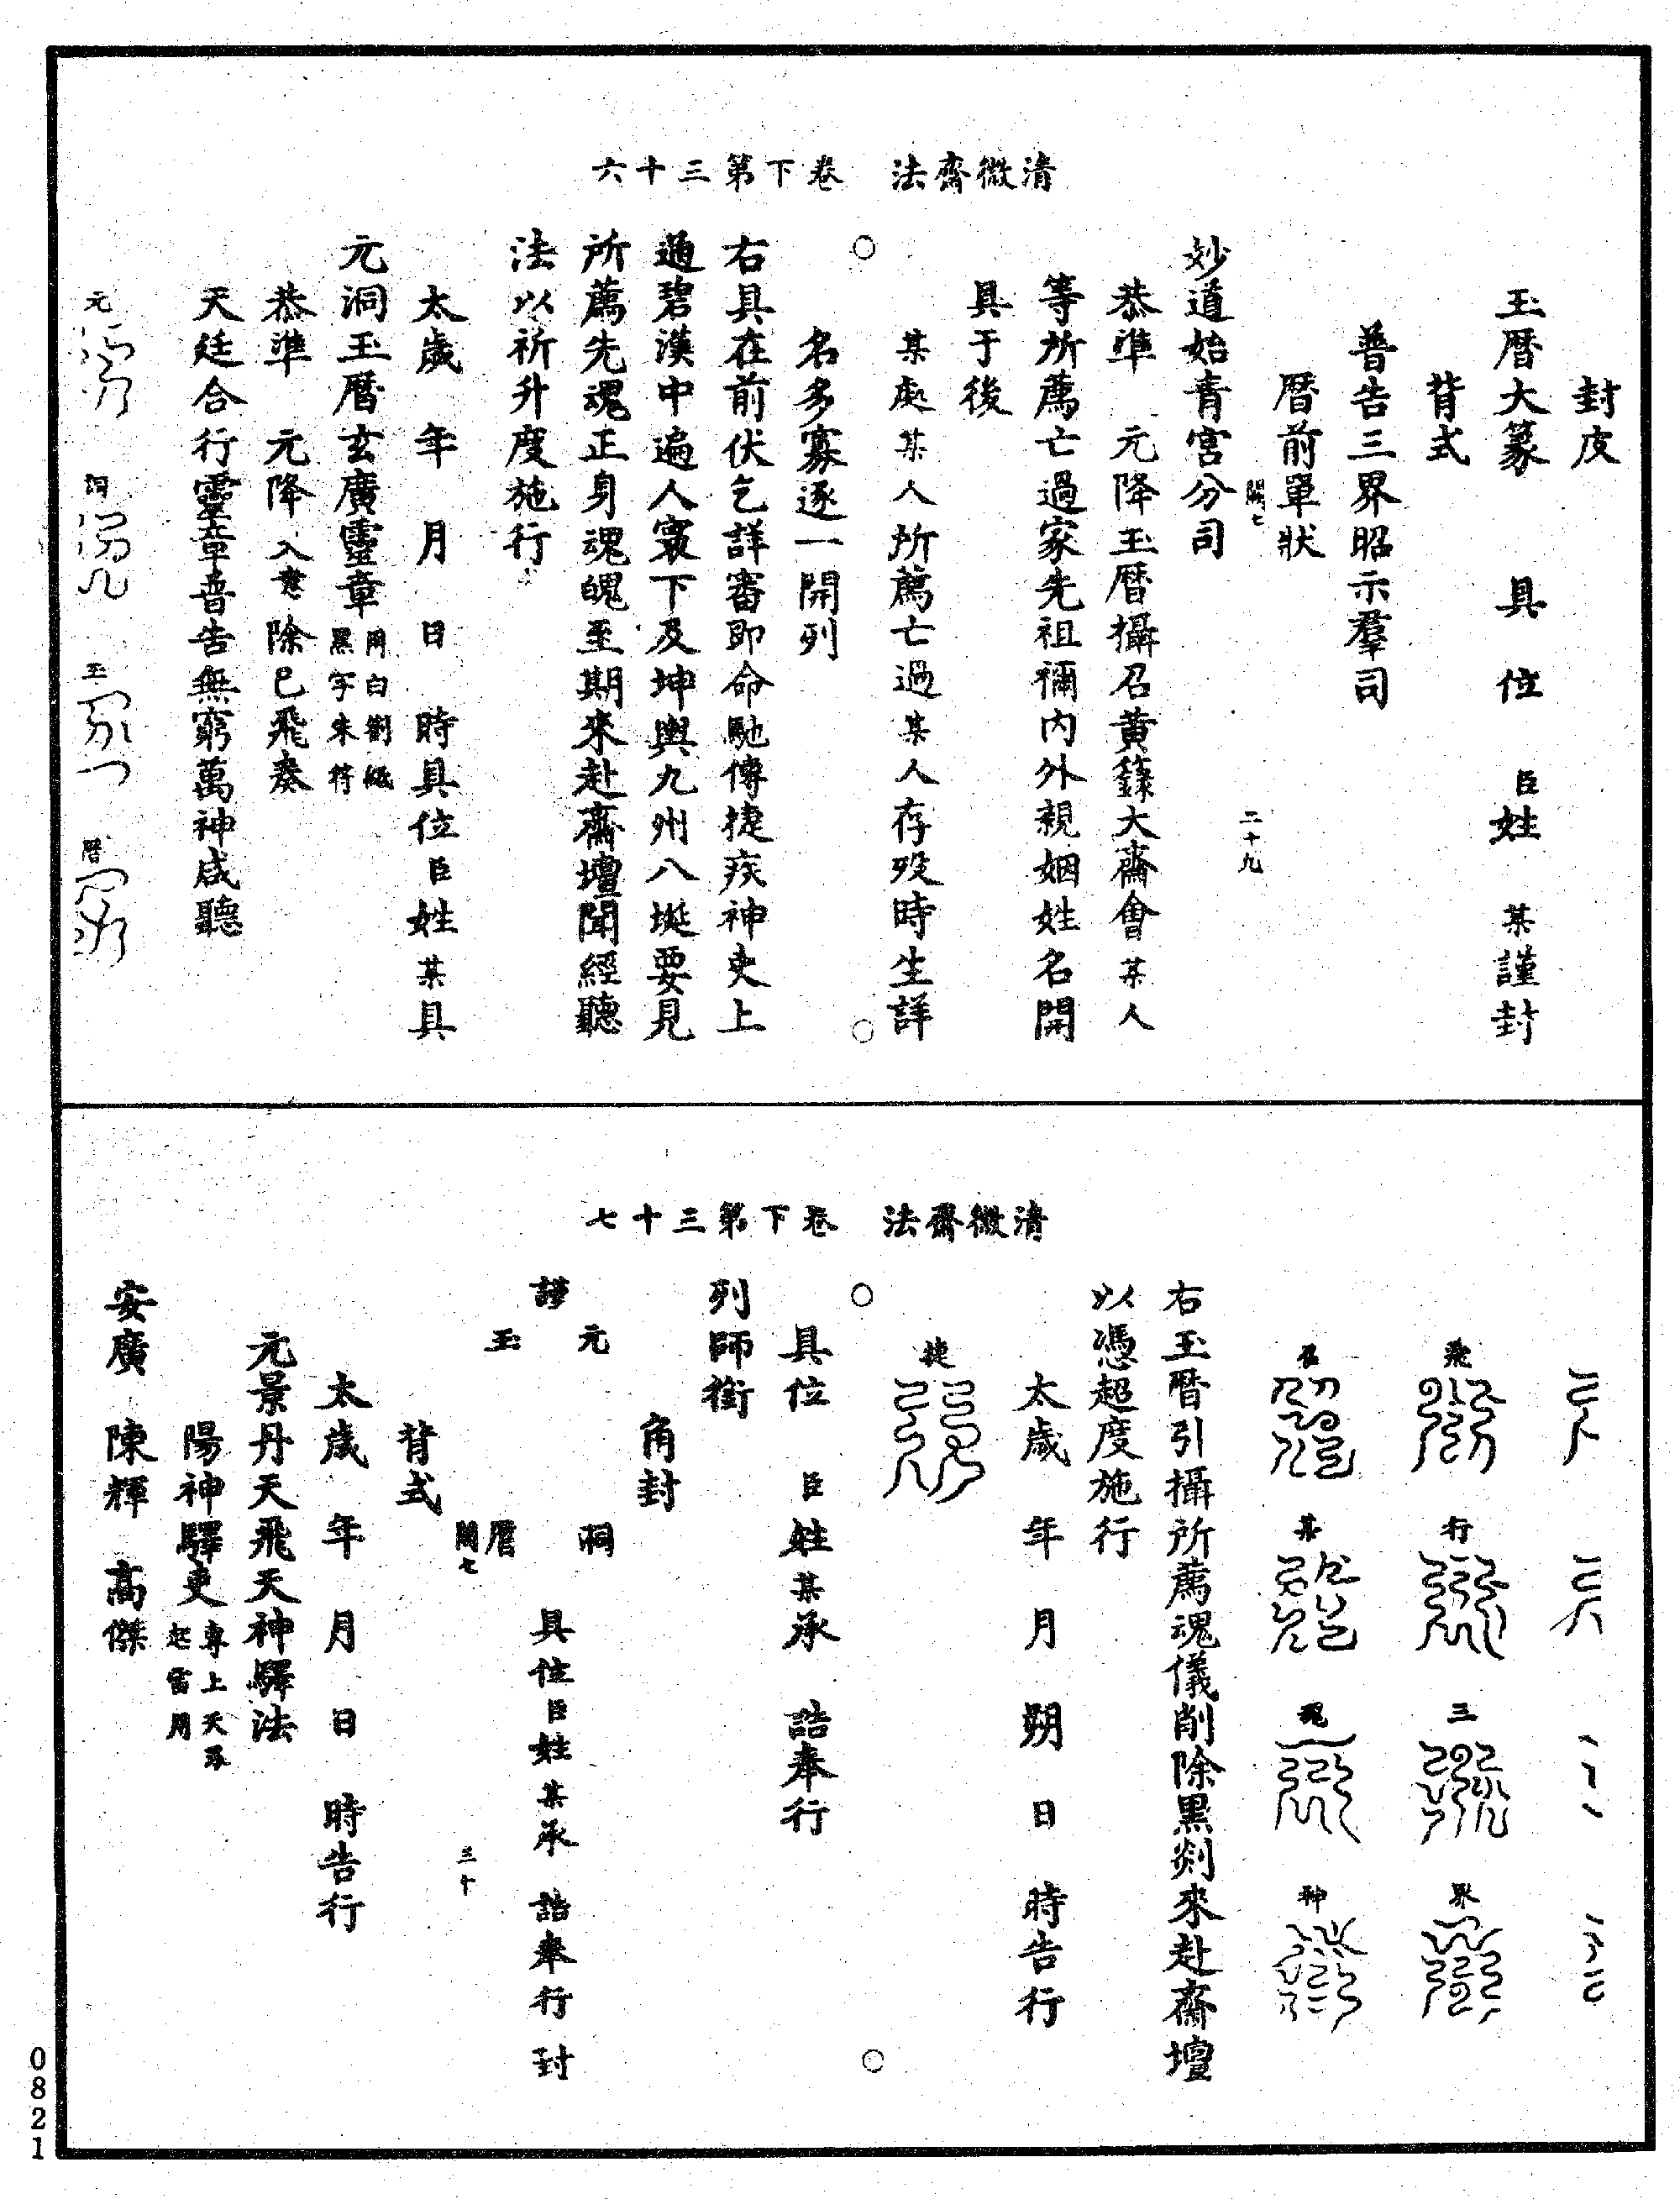 清微齋法　卷下第三十六
封皮
玉曆大篆　具　位　臣姓　某謹封
背式
普告三界昭示羣司
曆前單狀
關七　二十九
妙道始青宮分司
恭準　元降玉曆攝召黃籙大齋會某人
等所薦亡過家先祖禰內外親姻姓名開
具于後
某處某人所薦亡過某人存歿時生詳
名多寡逐一開列
右具在前伏乞詳審即命馳傳捷疾神吏上
通碧漢中遍人寰下及坤輿九州八埏要見
所薦先魂正身魂魄至期來赴齋壇聞經聽
法以祈升度施行
太歲　年　月　日　時具位臣姓某具
元洞玉曆玄廣靈章用白劄紙黑字朱符
恭準　元降入意除已飛奏
天廷合行靈章普告無窮萬神咸聽
元　洞　玉　曆
清微齋法　卷下第三十七
飛　行　三　界
召　某　魂　神
右玉曆引攝所薦魂儀削除黑剡來赴齋壇
以憑超度施行
太歲　年　月　朔　日　時告行
捷
具位　臣　姓某承　誥奉行
列師銜
角封
元　洞
謹　具位臣姓某承　誥奉行　封
玉　曆
關七　三十
背式
太歲　年　月　日　時告行
元景丹天飛天神驛法
陽神驛吏專上天尋起雷用
安廣　陳輝　高傑
0821